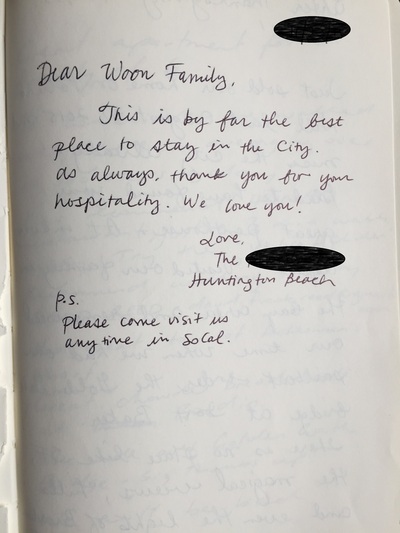 Dear Woon Family,
This is by far the best
place to stay in the City.
As always, thank you for your
hospitality. We love you!
Love,
The
Huntington Beach
p.s.
Please come visit us
anytime in SoCal.